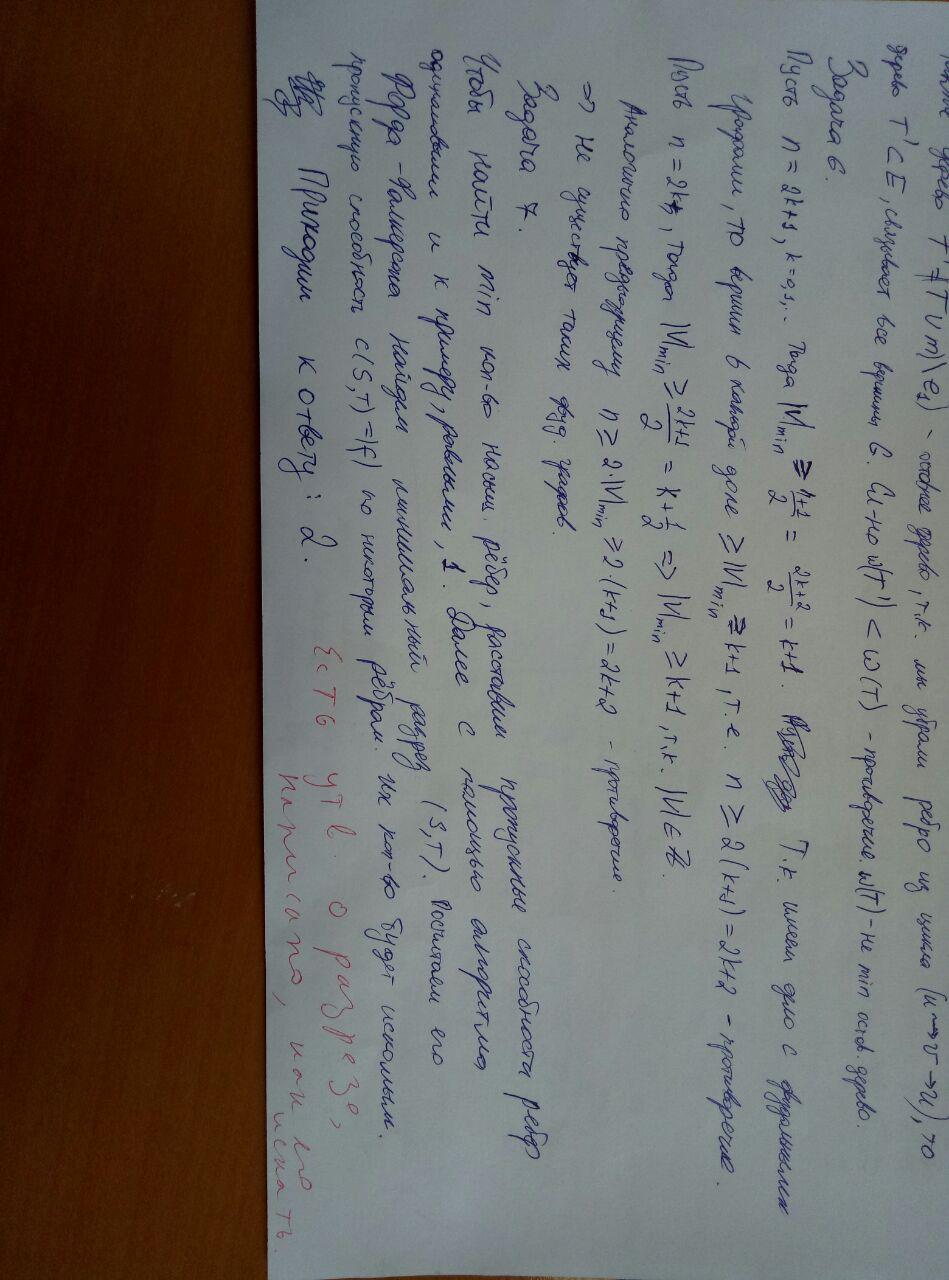 дерево T' = (T ∪ m) \ e₁) - остовное дерево, т.к. мы убрали ребро из цикла (u → v → u), то
дерево T' ⊂ E, связывает все вершины G. w(T') < w(T) - противоречие. w(T) - не min остов. дерево.
Задача 6.
Пусть n = 2k+1, k = 0,1,... Тогда |V|min ≥ (n+1)/2 = (2k+2)/2 = k+1. Т.к. имеем дело с двудольными
графами, то вершин в каждой доле ≥ |V|min ≥ k+1, т.е. n ≥ 2(k+1) = 2k+2 - противоречие.
Пусть n = 2k, тогда |V|min ≥ (2k+1)/2 = k + 1/2 => |V|min ≥ k+1, т.к. |V| ∈ ℤ.
Аналогично предыдущему n ≥ 2·|V|min ≥ 2·(k+1) = 2k+2 - противоречие.
=> Не существует таких двуд. графов.
Задача 7.
Чтобы найти min кол-во насыщ. рёбер, расставим пропускные способности рёбер
одинаковыми и к примеру, равными, 1. Далее с помощью алгоритма
Форда-Фалкерсона найдем минимальный разрез (S,T). Посчитаем его
пропускную способность c(S,T) = |f| по некоторым рёбрам. Их кол-во будет искомым.
Приходим к ответу: 2.
Есть утв. о разрезе,
написано, как его
искать.